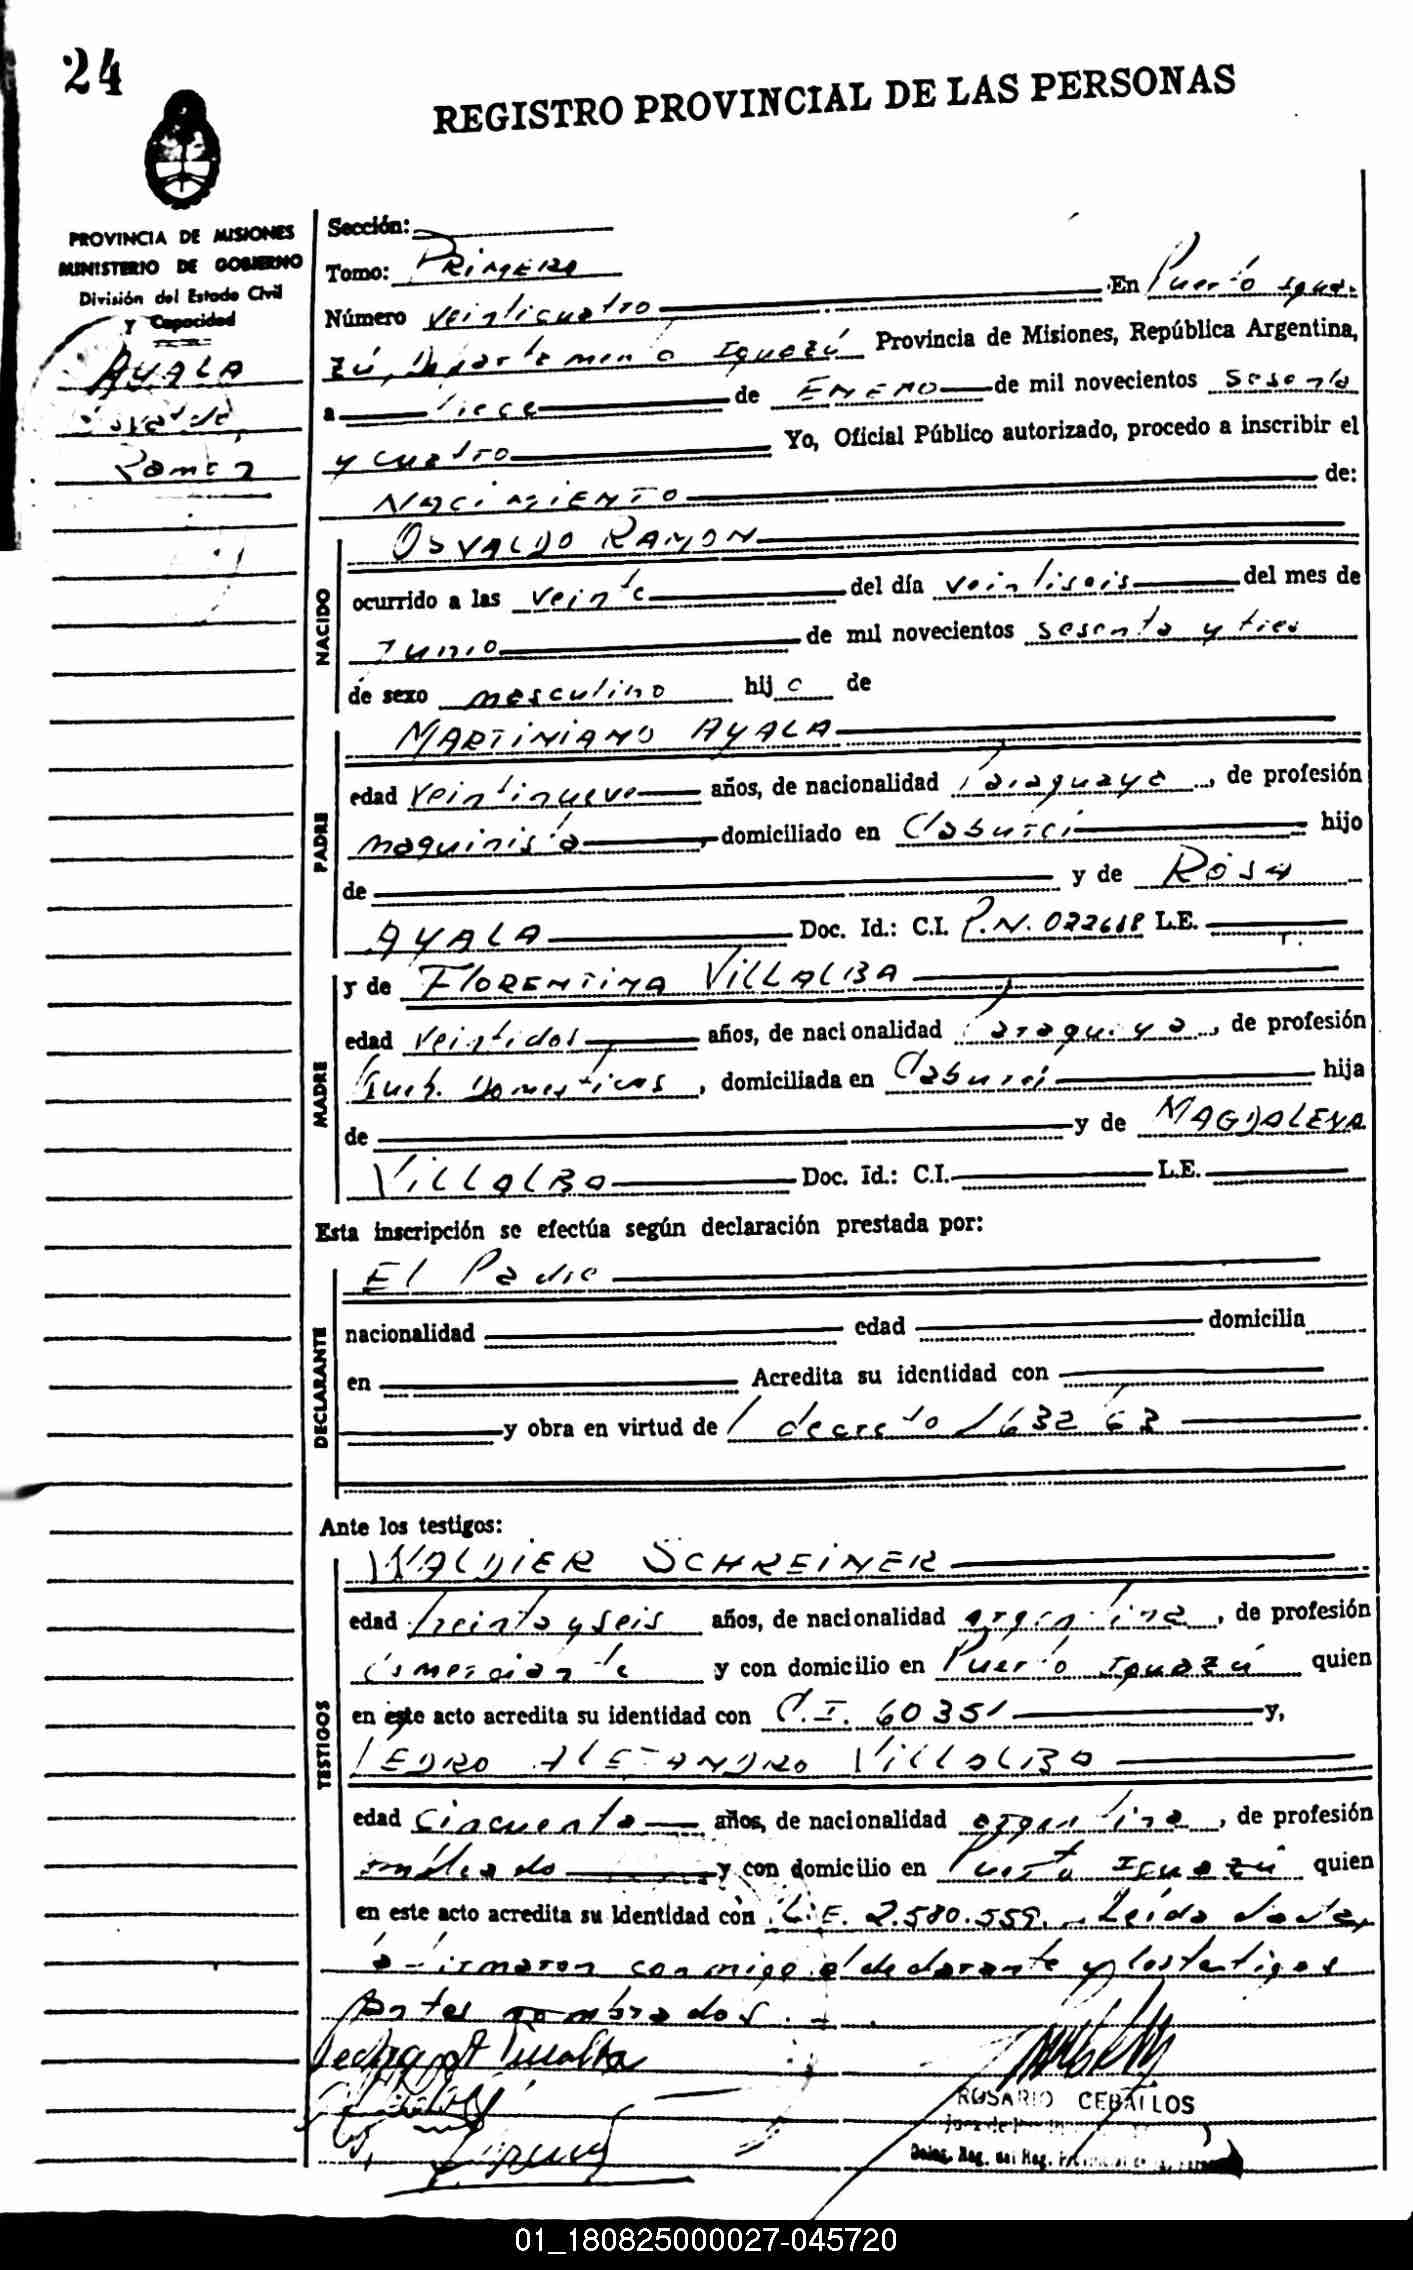 24
REGISTRO PROVINCIAL DE LAS PERSONAS
PROVINCIA DE MISIONES
MINISTERIO DE GOBIERNO
División del Estado Civil
y Capacidad
AYALA
Osvaldo
Ramon
Sección:
Tomo: PRIMERO
Número veinticuatro En Puerto Igua-
zú, Departamento Iguazú Provincia de Misiones, República Argentina,
a trece de ENERO de mil novecientos sesenta
y cuatro Yo, Oficial Público autorizado, procedo a inscribir el
NACIMIENTO de:
NACIDO
OSVALDO RAMON
ocurrido a las veinte del día veintiseis del mes de
Junio de mil novecientos sesenta y tres
de sexo masculino hijo de
PADRE
MARTINIANO AYALA
edad veintinueve años, de nacionalidad Paraguaya, de profesión
maquinista, domiciliado en Caburei hijo
de y de ROSA
AYALA Doc. Id.: C.I. P.N. 022618 L.E.
MADRE
y de FLORENTINA VILLALBA
edad veintidos años, de nacionalidad Paraguaya, de profesión
Queh. Domesticos, domiciliada en Caburei hija
de y de MAGDALENA
VILLALBA Doc. Id.: C.I. L.E.
Esta inscripción se efectúa según declaración prestada por:
DECLARANTE
El Padre
nacionalidad edad domicilia
en Acredita su identidad con
y obra en virtud de decreto 1632/63
Ante los testigos:
TESTIGOS
WALDIER SCHREINER
edad treinta y seis años, de nacionalidad argentina, de profesión
comerciante y con domicilio en Puerto Iguazú quien
en este acto acredita su identidad con C.I. 60351 y,
PEDRO ALEJANDRO VILLALBA
edad cincuenta años, de nacionalidad argentina, de profesión
empleado y con domicilio en Puerto Iguazú quien
en este acto acredita su identidad con L.E. 2.580.559. Leída
firmaron conmigo el declarante y los testigos
antes nombrados.
ROSARIO CEBALLOS
01_180825000027-045720